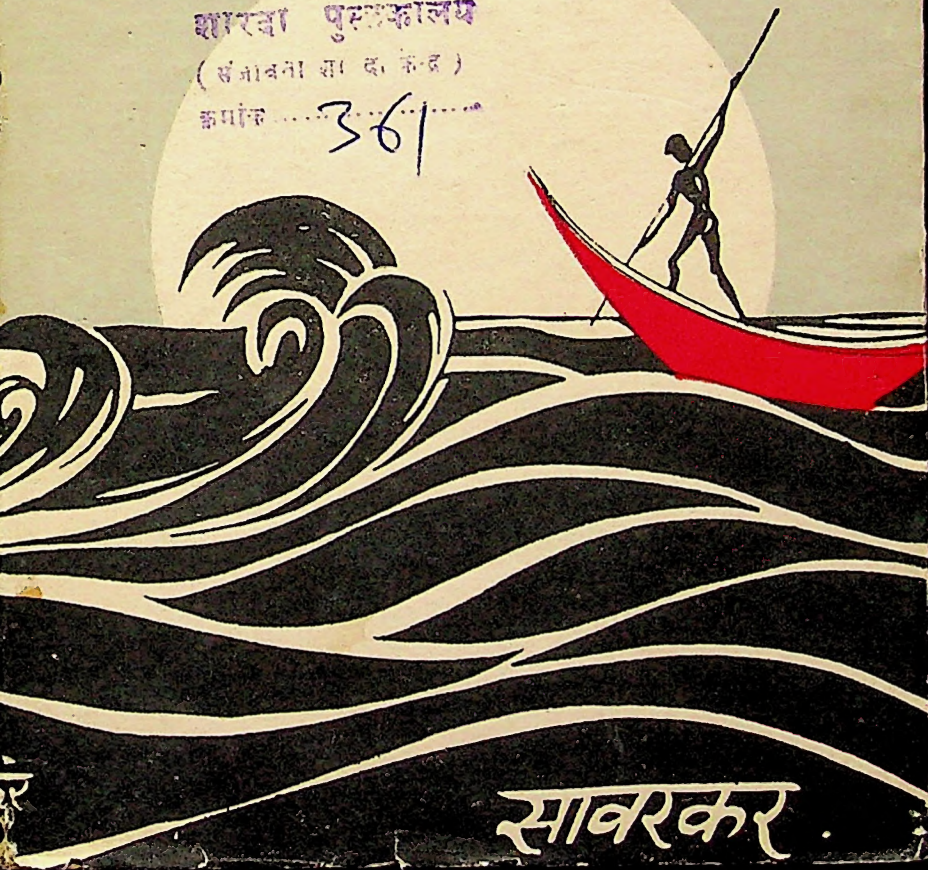 शारदा पुस्तकालय
(संजीवनी शा. द. केन्द्र)
क्रमांक ............ 361
सावरकर